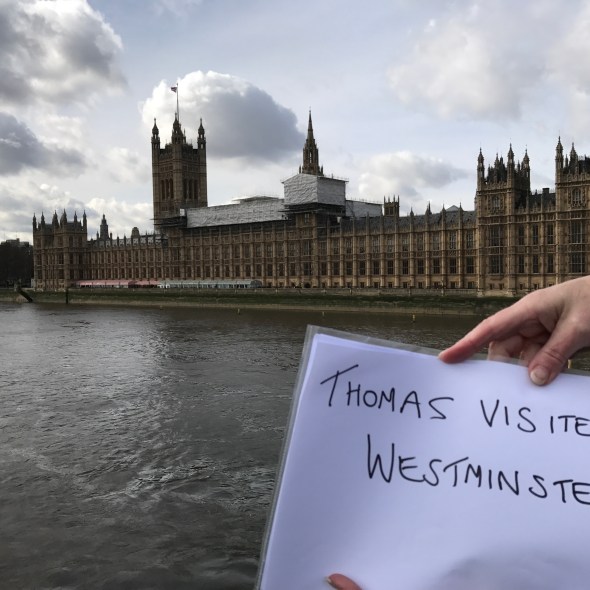 THOMAS VISITE
WESTMINSTE